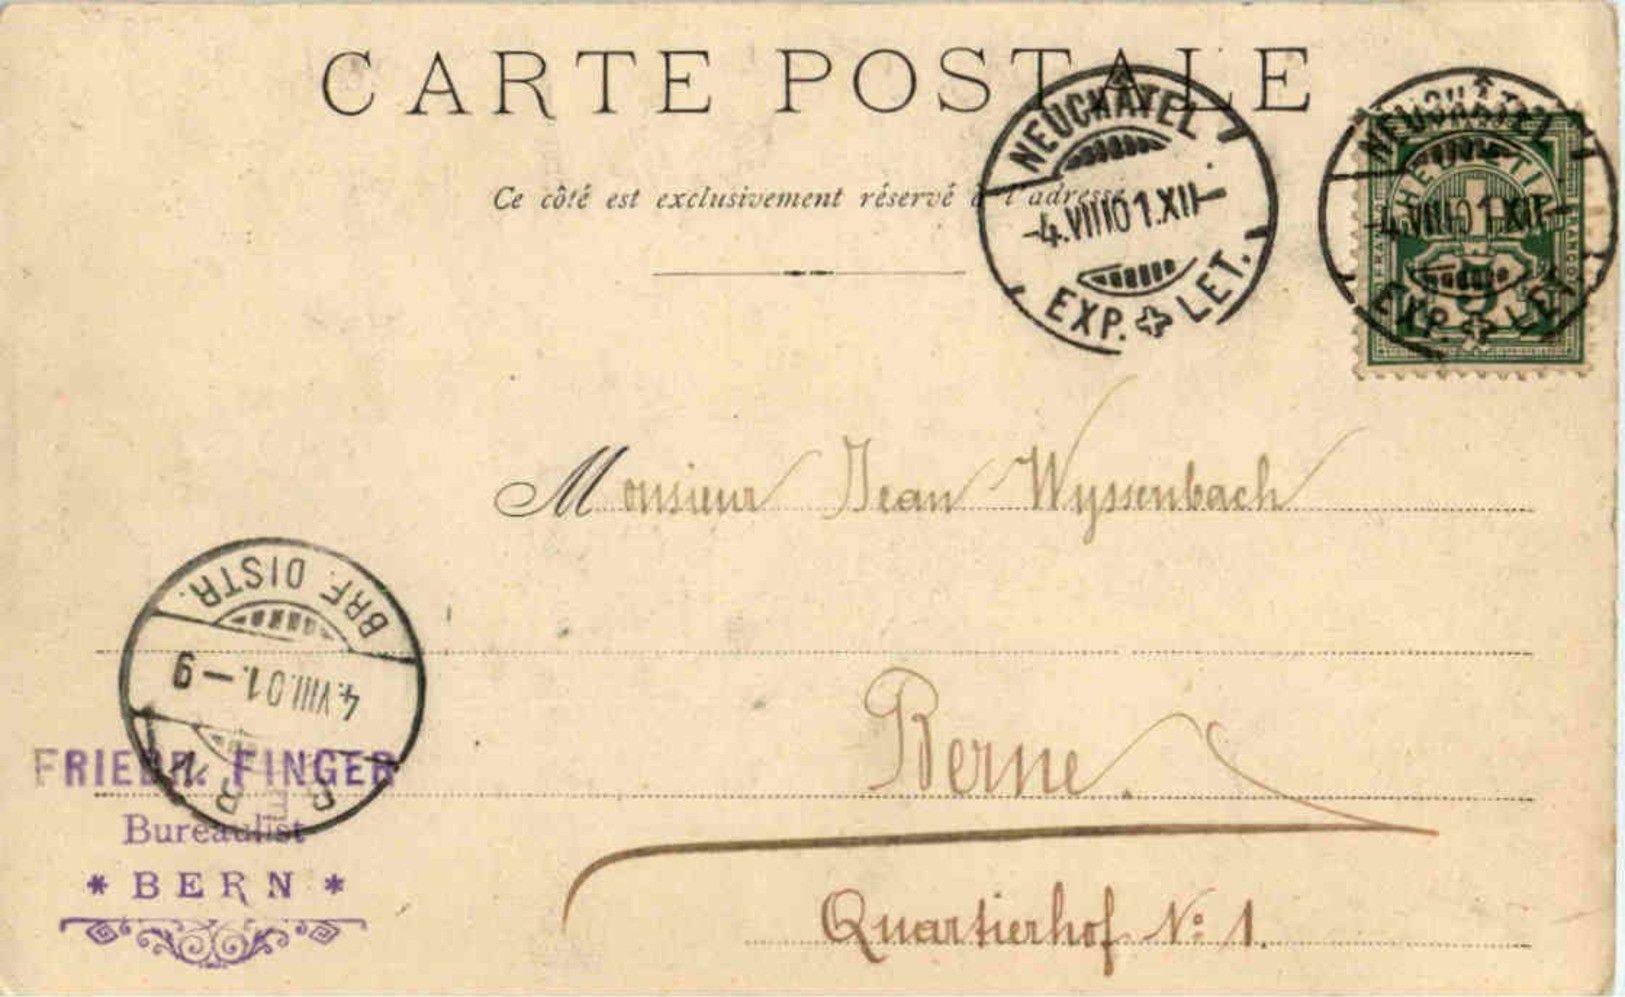 CARTE POSTALE
Ce côté est exclusivement réservé à l'adresse
NEUCHÂTEL
-4.VIII01.XII-
EXP. LET.
NEUCHÂTEL
-4.VIII01.XII-
EXP. LET.
HELVETIA
FRANCO
5
Monsieur Jean Wyssenbach
BRF. DISTR.
4.VIII.01.-9
BERN
Berne.
FRIEDR. FINGER
Bureaulist
* BERN *
Quartierhof No: 1.